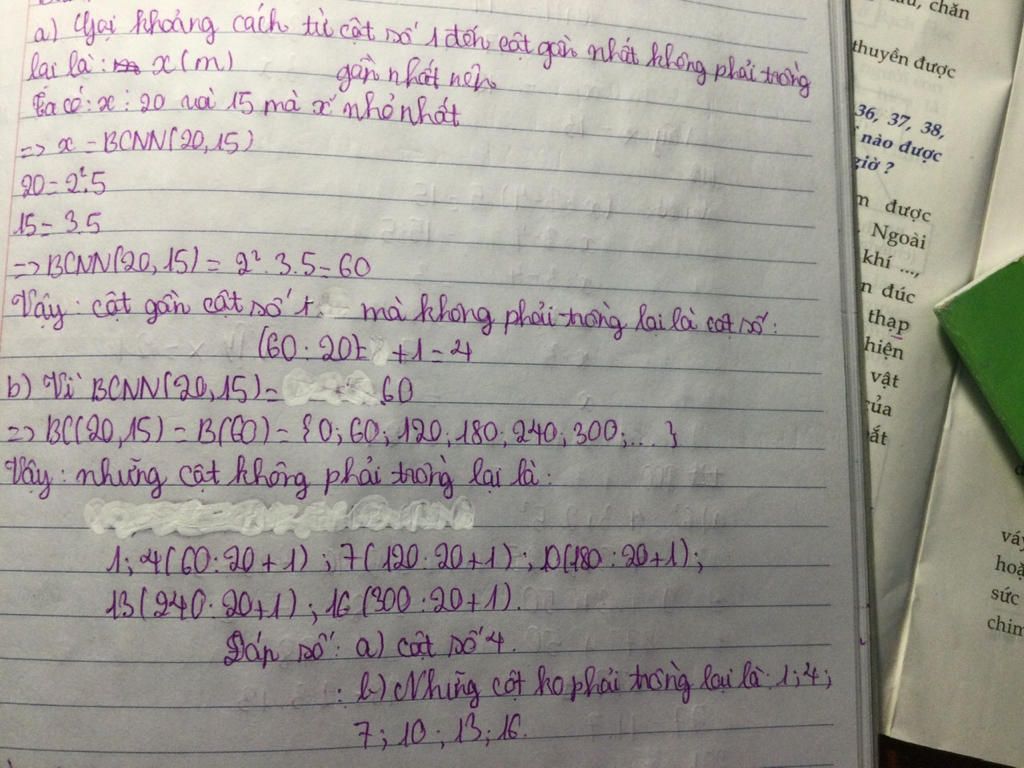 a) Gọi khoảng cách từ cột số 1 đến cột gần nhất không phải trồng
lại là: x(m)
gần nhất nên
Ta có: x ⋮ 20 và 15 mà x nhỏ nhất
=> x = BCNN(20,15)
20 = 2².5
15 = 3.5
=> BCNN(20,15) = 2².3.5 = 60
Vậy: cột gần cột số 1 mà không phải trồng lại là cột số:
(60:20) +1 = 4
b) Vì BCNN(20,15) = 60
=> BC(20,15) = B(60) = {0; 60; 120; 180; 240; 300; ... }
Vậy: những cột không phải trồng lại là:
1; 4(60:20+1); 7(120:20+1); 10(180:20+1);
13(240:20+1); 16(300:20+1).
Đáp số: a) cột số 4.
: b) Những cột ko phải trồng lại là: 1; 4;
7; 10; 13; 16.
chăn
thuyền được
36, 37, 38,
nào được
giờ ?
được
Ngoài
khí ...,
đúc
thạp
hiện
vật
của
váy
hoặ
sức
chim